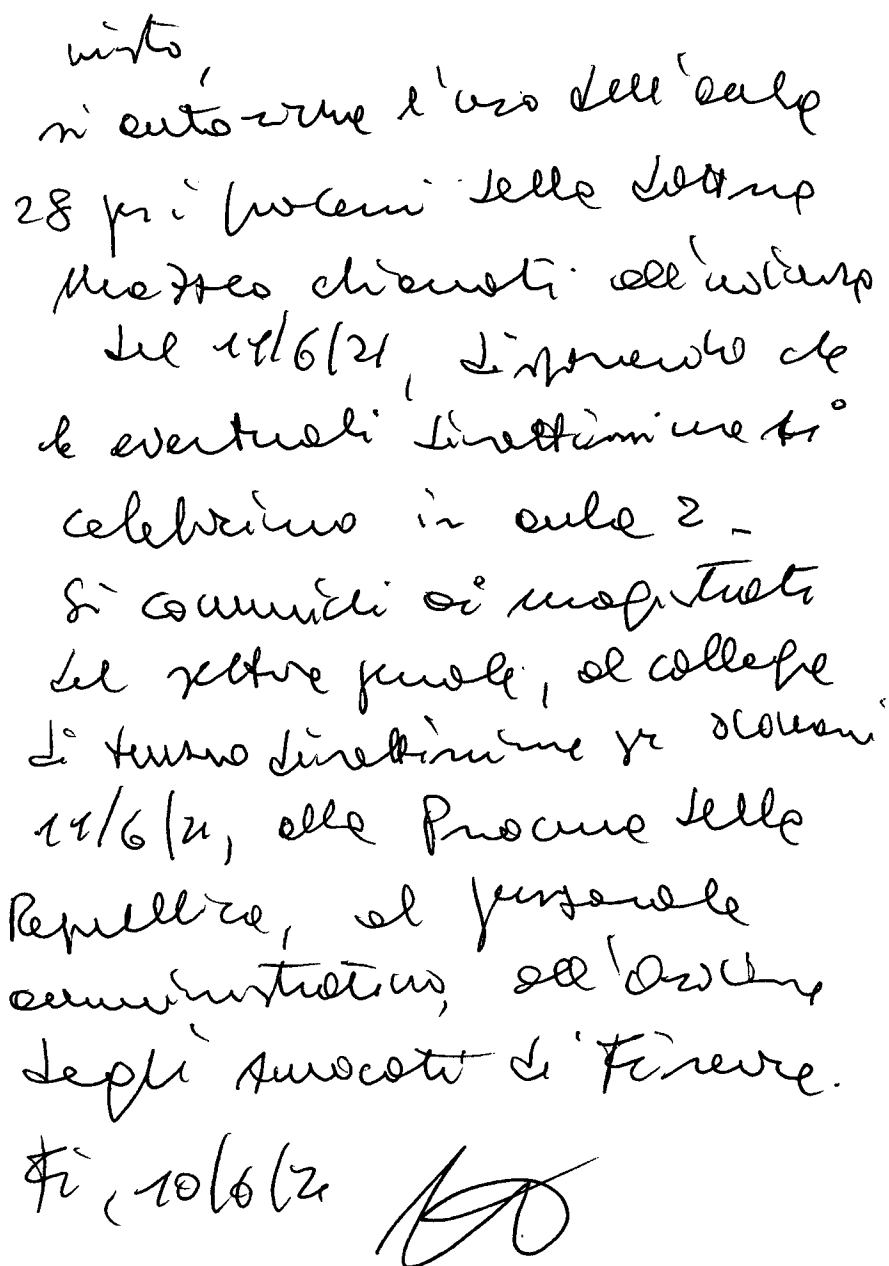 visto,
si autorizza l'uso dell'aula
28 per i processi della dott.ssa
chiamati all'udienza
del 11/6/21, disponendo che
le eventuali direttissime si
celebrino in aula 2 -
Si comunichi ai magistrati
del settore penale, al collegio
di turno direttissime per domani
11/6/21, alla Procura della
Repubblica, al personale
amministrativo, all'Ordine
degli Avvocati di Firenze.
Fi, 10/6/21